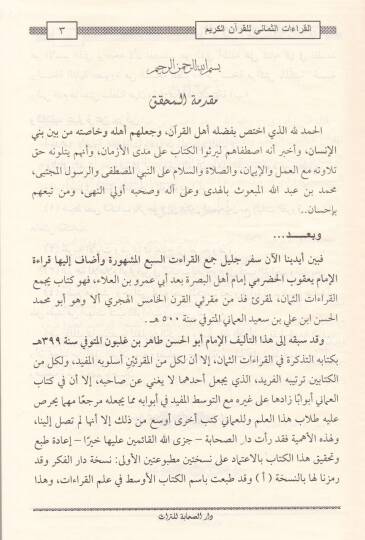 القراءات الثماني للقرآن الكريم
٣
بسم الله الرحمن الرحيم
مقدمة المحقق
الحمد لله الذي اختص بفضله أهل القرآن، وجعلهم أهله وخاصته من بين بني
الإنسان، وأخبر أنه اصطفاهم ليرثوا الكتاب على مدى الأزمان، وأنهم يتلونه حق
تلاوته مع العمل والإيمان، والصلاة والسلام على النبي المصطفى والرسول المجتبى،
محمد بن عبد الله المبعوث بالهدى وعلى آله وصحبه أولي النهى، ومن تبعهم
بإحسان..
وبعـــد...
فبين أيدينا الآن سفر جليل جمع القراءت السبع المشهورة وأضاف إليها قراءة
الإمام يعقوب الحضرمي إمام أهل البصرة بعد أبي عمرو بن العلاء، فهو كتاب يجمع
القراءات الثمان، لمقرئ فذ من مقرئي القرن الخامس الهجري ألا وهو أبو محمد
الحسن ابن علي بن سعيد العماني المتوفي سنة ٥٠٠ هـ.
وقد سبقه إلى هذا التأليف الإمام أبو الحسن طاهر بن غلبون المتوفي سنة ٣٩٩هـ
بكتابه التذكرة في القراءات الثمان، إلا أن لكل من المقرئين أسلوبه المفيد، ولكل من
الكتابين ترتيبه الفريد، الذي يجعل أحدهما لا يغني عن صاحبه، إلا أن في كتاب
العماني أبوابًا زادها على غيره مع التوسط المفيد في أبوابه مما يجعله مرجعًا مهما يحرص
عليه طلاب هذا العلم وللعماني كتب أخرى أوسع من ذلك إلا أنها لم تصل إلينا،
ولهذه الأهمية فقد رأت دار الصحابة – جزى الله القائمين عليها خيرًا – إعادة طبع
وتحقيق هذا الكتاب بالاعتماد على نسختين مطبوعتين الأولى: نسخة دار الفكر وقد
رمزنا لها بالنسخة ( أ ) وقد طبعت باسم الكتاب الأوسط في علم القراءات، وهذا
دار الصحابة للتراث